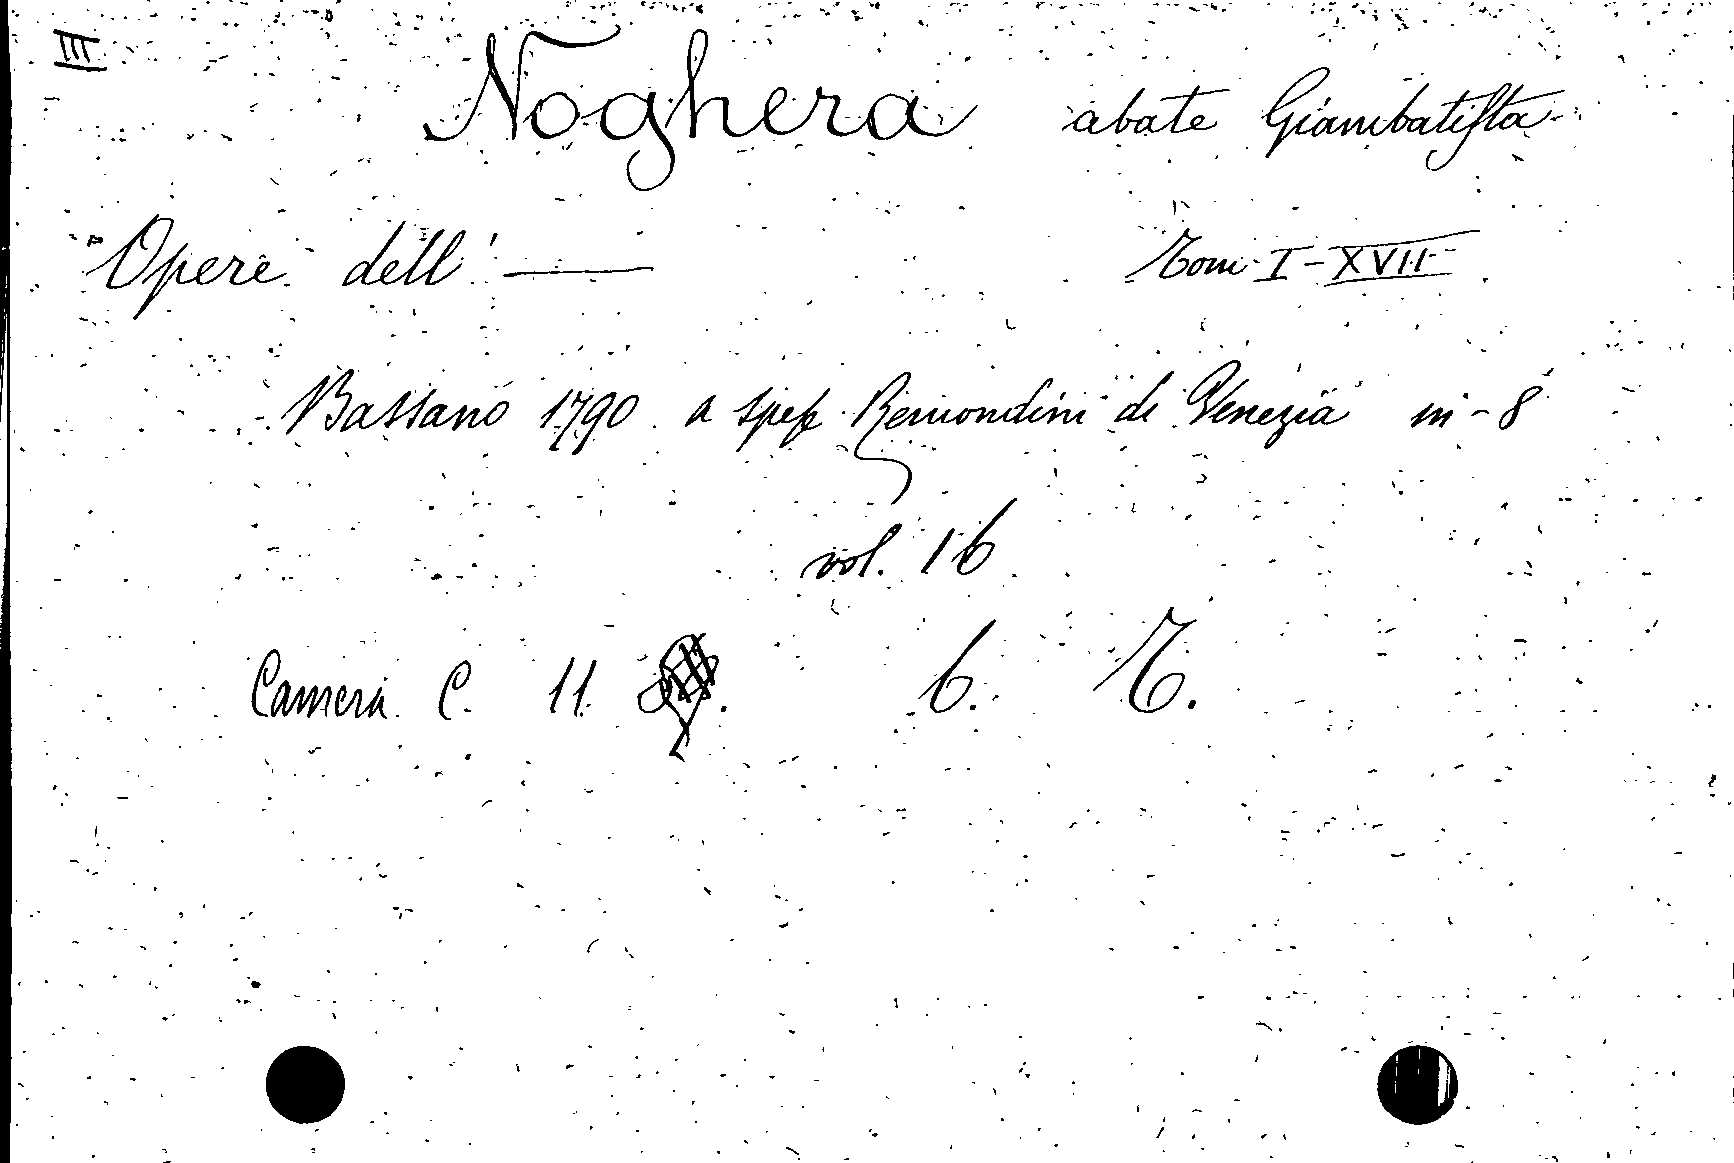 III
Noghera abate Giambatista
Opere dell' —— Tomi I-XVII
Bassano 1790 a spese Remondini di Venezia in-8°
vol. 16
Camera C. 11. 6. T.